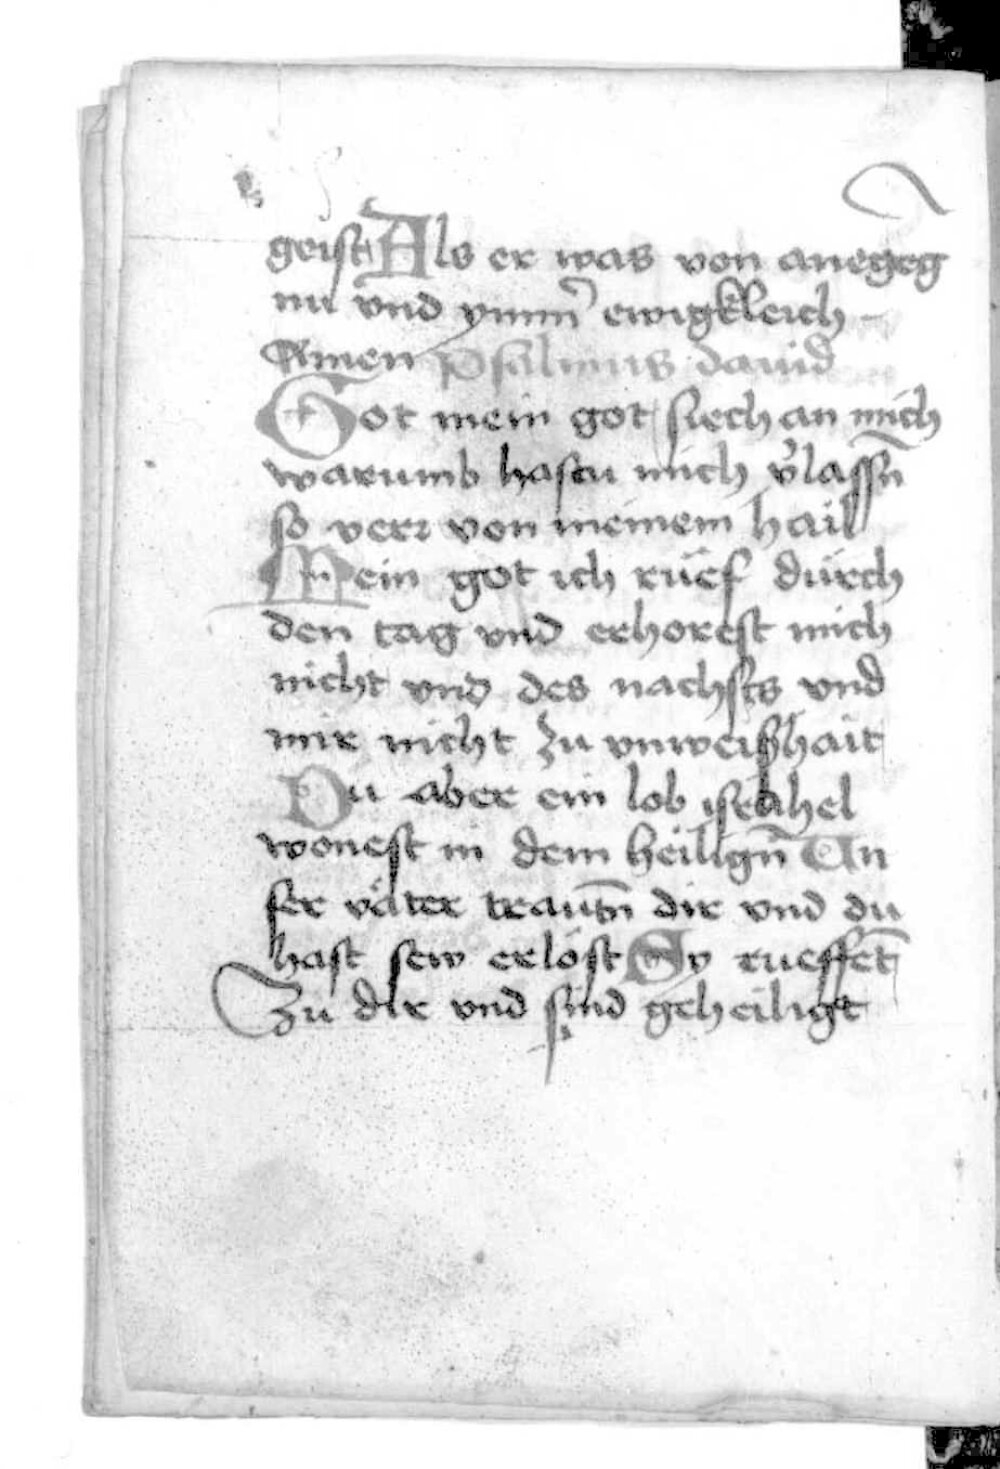 geist Als er was von anegeg
nu vnd ymm̃ ewigkleich
Amen Psalmus dauid
Got mein got siech an mich
warumb hastu mich v̓lassn̄
so verr von meinem hail
Mein got ich rüef dürch
den tag vnd erhorest mich
nicht vnd des nachsts vnd
mir nicht zu vnweishait
Du aber ein lob israhel
wonest in dem heilign̄ Vn
ser väter trautn̄ dir vnd du
hast sew erlöst Sy rueffet̄
Zu dir vnd sind geheiligt